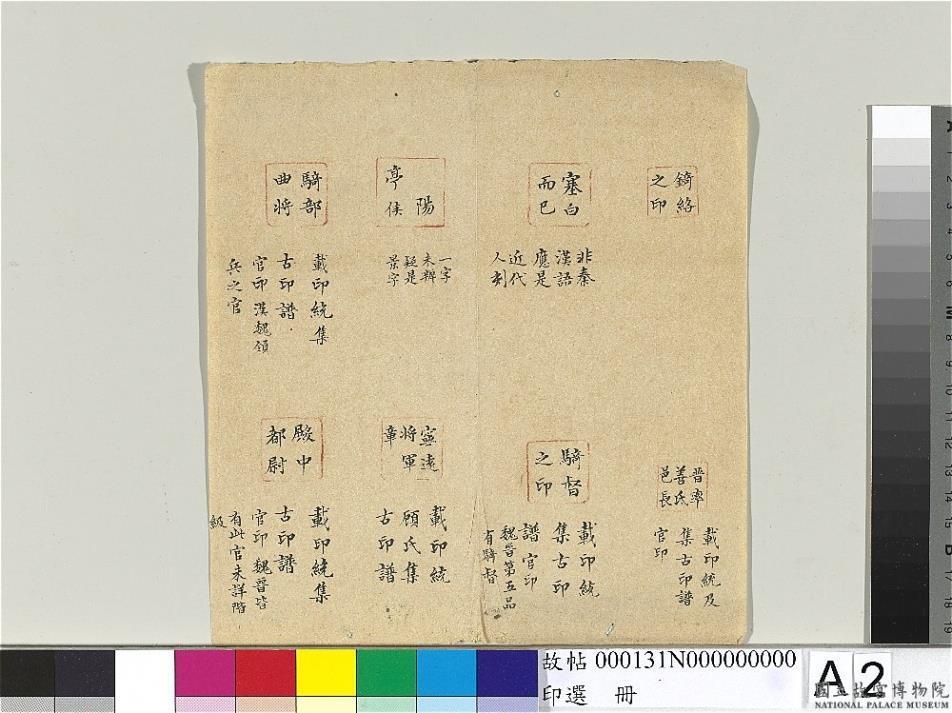 錡絡
之印
塞白
而巳
非秦
漢語
應是
近代
人刻
陽
亭侯
一字
未辨
疑是
景字
騎部
曲将
載印統集
古印譜
官印 漢魏領
兵之官
晋率
善氐
邑長
載印統及
集古印譜
官印
騎督
之印
載印統
集古印
譜 官印
魏晉第五品
有騎督
寧遠
将軍
章
載印統
顧氏集
古印譜
殿中
都尉
載印統集
古印譜
官印 魏晉皆
有此官未詳階
級
故帖 000131N000000000
印選 冊
A 2
國立故宮博物院
NATIONAL PALACE MUSEUM
M
8
9
10
11
12
13
14
15
16
17
18
19